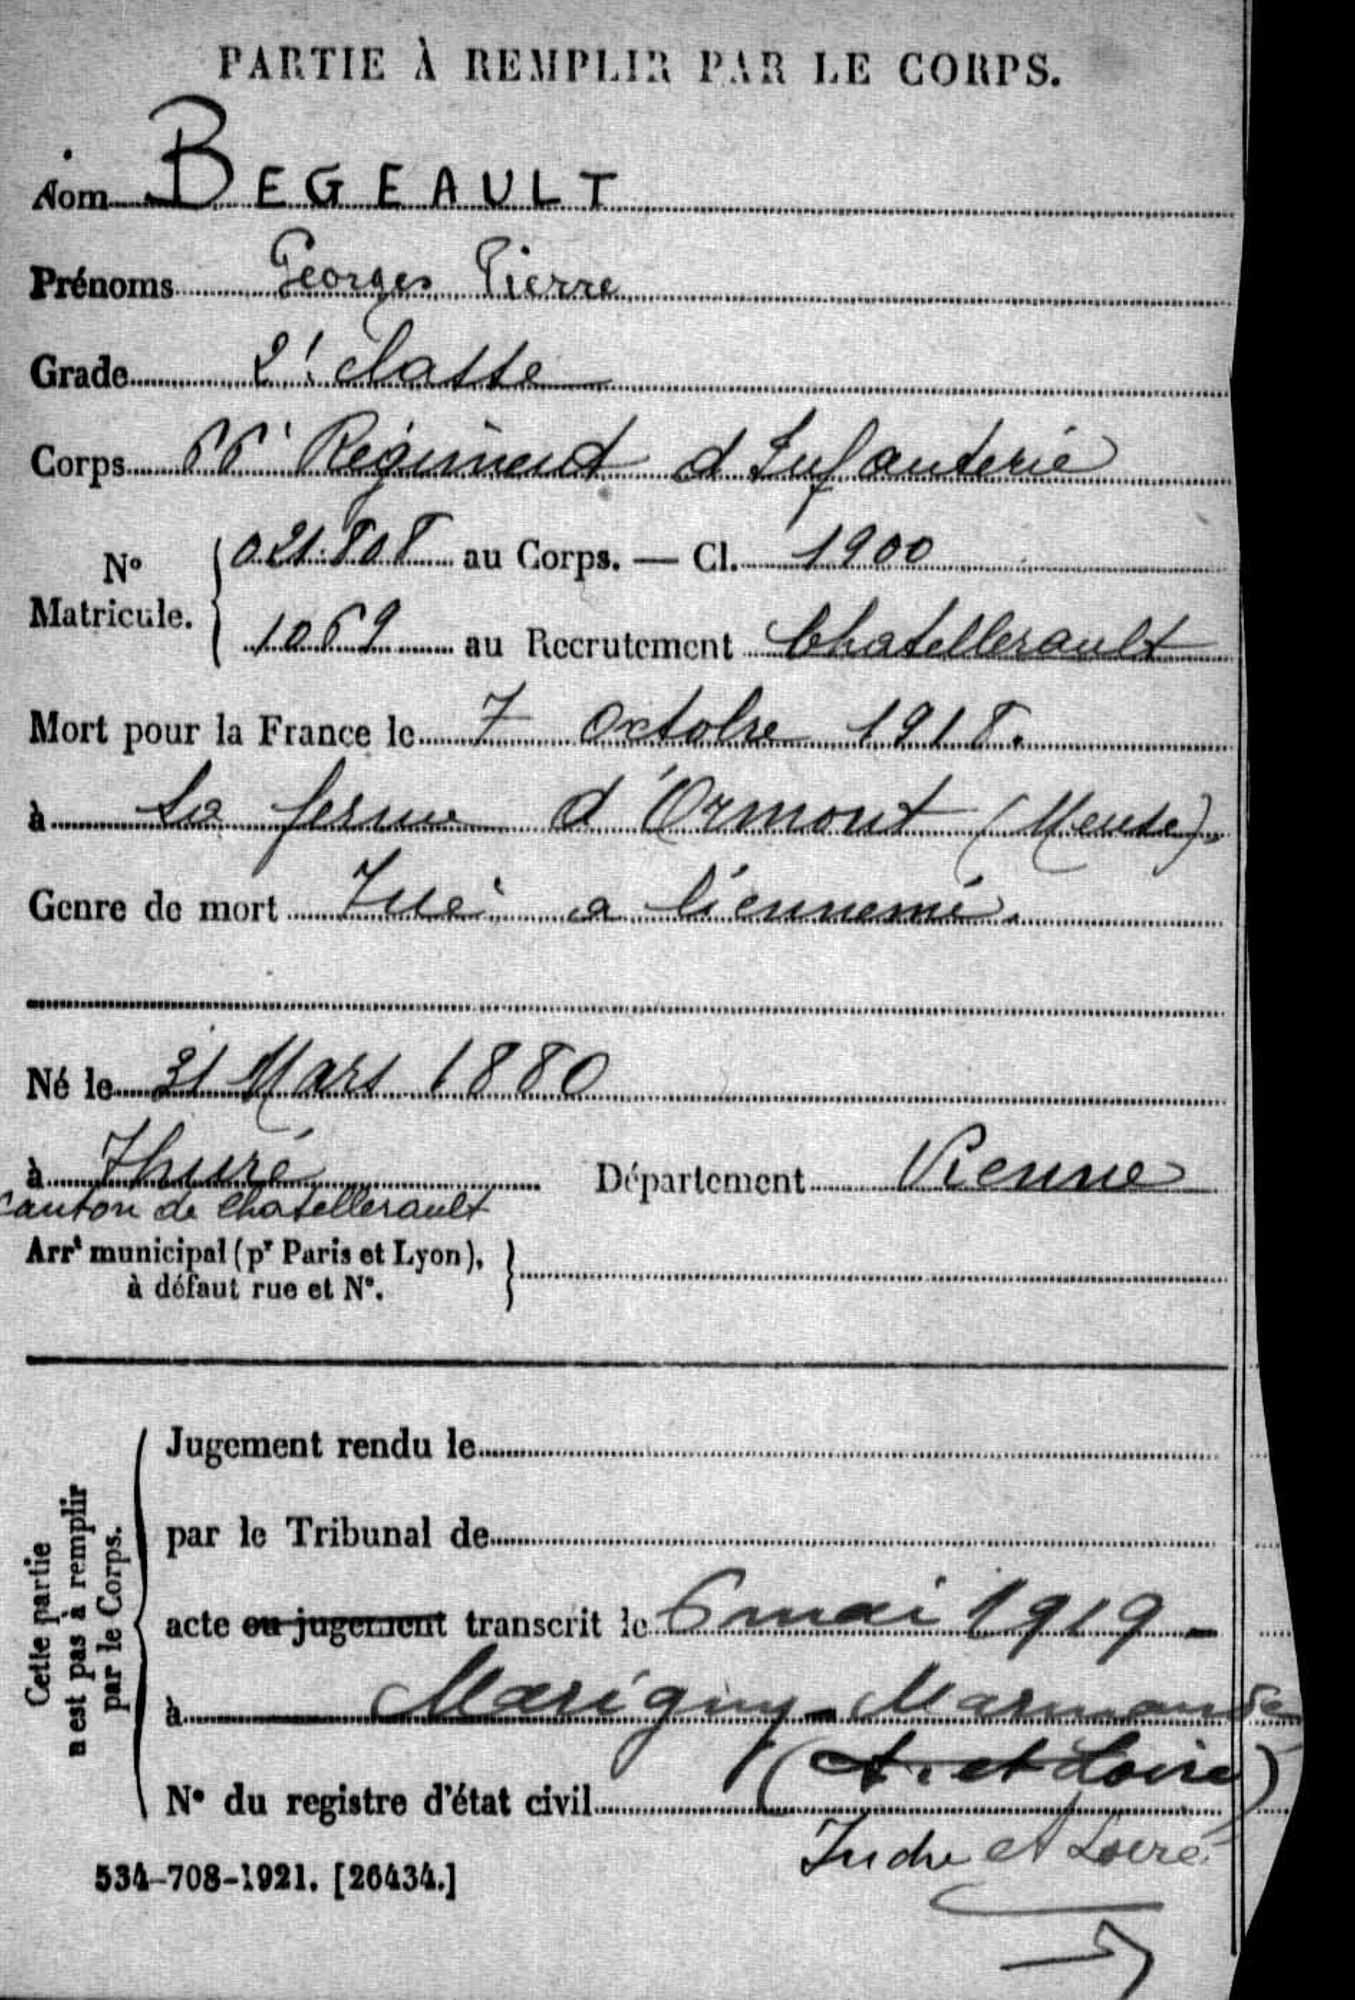 PARTIE À REMPLIR PAR LE CORPS.
Nom BEGEAULT
Prénoms Georges Pierre
Grade 2e classe
Corps 66e Régiment d'Infanterie
No Matricule. 021.808 au Corps. — Cl. 1900
1069 au Recrutement Chatellerault
Mort pour la France le 7 Octobre 1918.
à La ferme d'Ormont (Meuse).
Genre de mort Tué a l'ennemi.
Né le 31 Mars 1880
à Thuré Département Vienne
canton de Chatellerault
Arrt municipal (pr Paris et Lyon),
à défaut rue et No.
Cette partie
n'est pas à remplir
par le Corps.
Jugement rendu le
par le Tribunal de
acte ou jugement transcrit le 6 mai 1919 -
à Marigny-Marmande
(A. et Loire)
No du registre d'état civil
Indre et Loire
534-708-1921. [26434.]